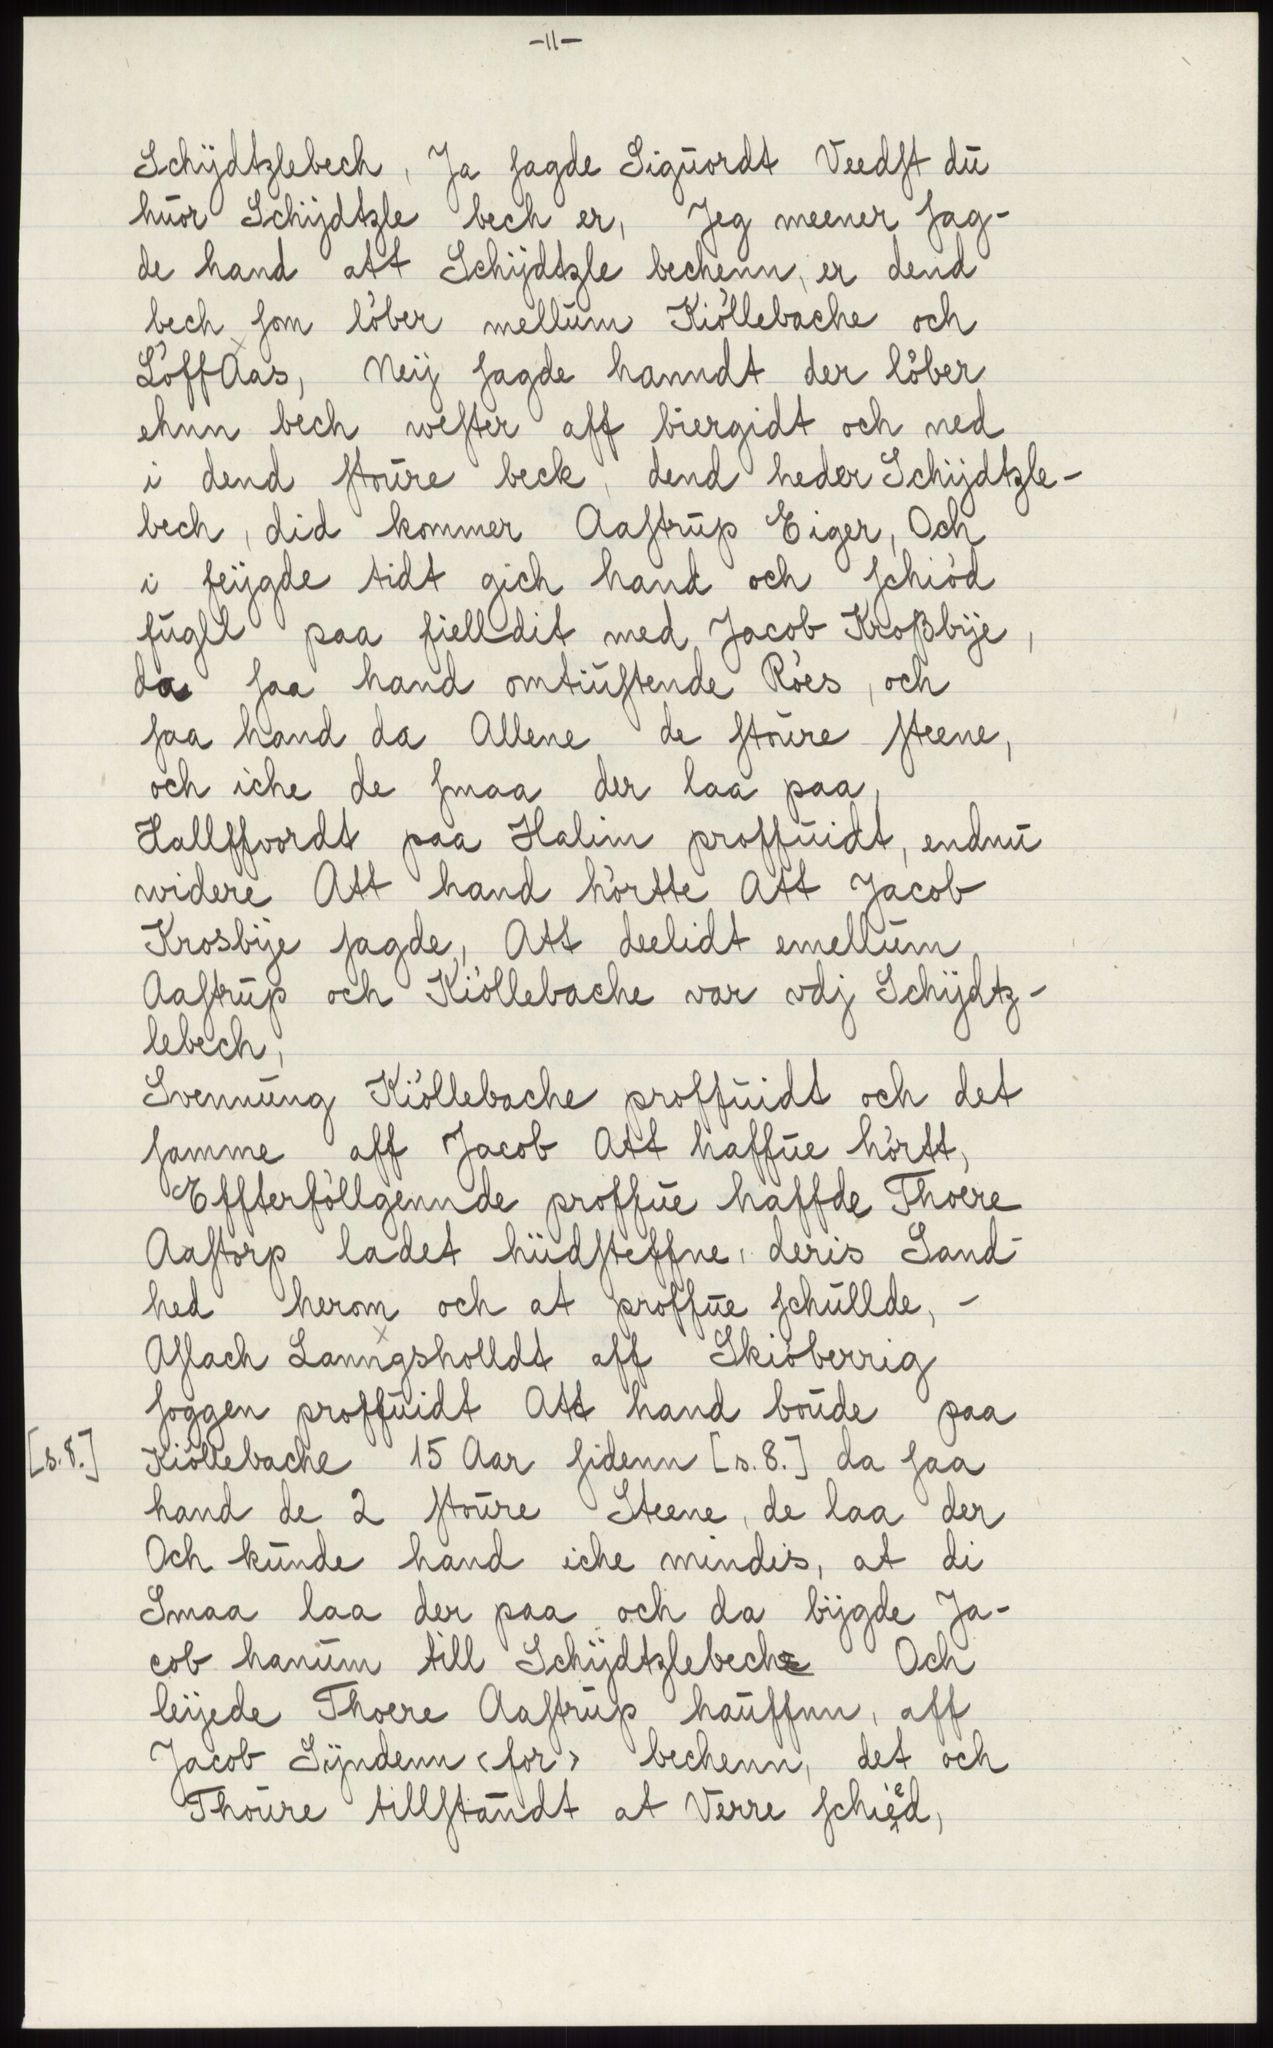 -11-
Schijdtzlebech, Ja sagde Siguordt Veedst du
huor Schijdtzle bech er, Jeg meener sag-
de hand att Schijdtzle bechenn, er dend
bech som löber mellum Kiöllebache och
Löff Aas, Neij sagde hanndt der löber
ehnn bech wester aff biergidt och ned
i dend stoure beck, dend heder Schijdtzle-
bech, did kommer Aastrup Eiger, Och
i feijgde tidt gich hand och schiöd
fugll paa fielldit med Jacob Kroßbije,
da saa hand omtiustende Röes, och
saa hand da Allene de stoure steene,
och iche de smaa der laa paa,
Hallffvordt paa Halim proffuidt, endnu
widere Att hand hörtte Att Jacob
Krosbije sagde, Att deelidt emellum
Aastrup och Kiöllebache var vdj Schijdtz-
lebech,
Svennung Kiöllebache proffuidt och det
samme aff Jacob Att haffue hörtt,
Effterföllgennde proffue haffde Thoere
Aastorp ladet hiidsteffne, deris Sand-
hed herom och at proffue schullde, -
Aslach Lanngsholldt aff Skiöberrig
soggen proffuidt Att hand boude paa
[s. 8.] Kiöllebache 15 Aar sidenn [s. 8.] da saa
hand de 2 stoure Steene, de laa der
Och kunde hand iche mindis, at di
Smaa laa der paa och da bijgde Ja-
cob hanum till Schijdtzlebech Och
leijede Thoere Aastrup hauffnn, aff
Jacob Sijndenn <for> bechenn, det och
Thoure tillstandt at Verre schied,